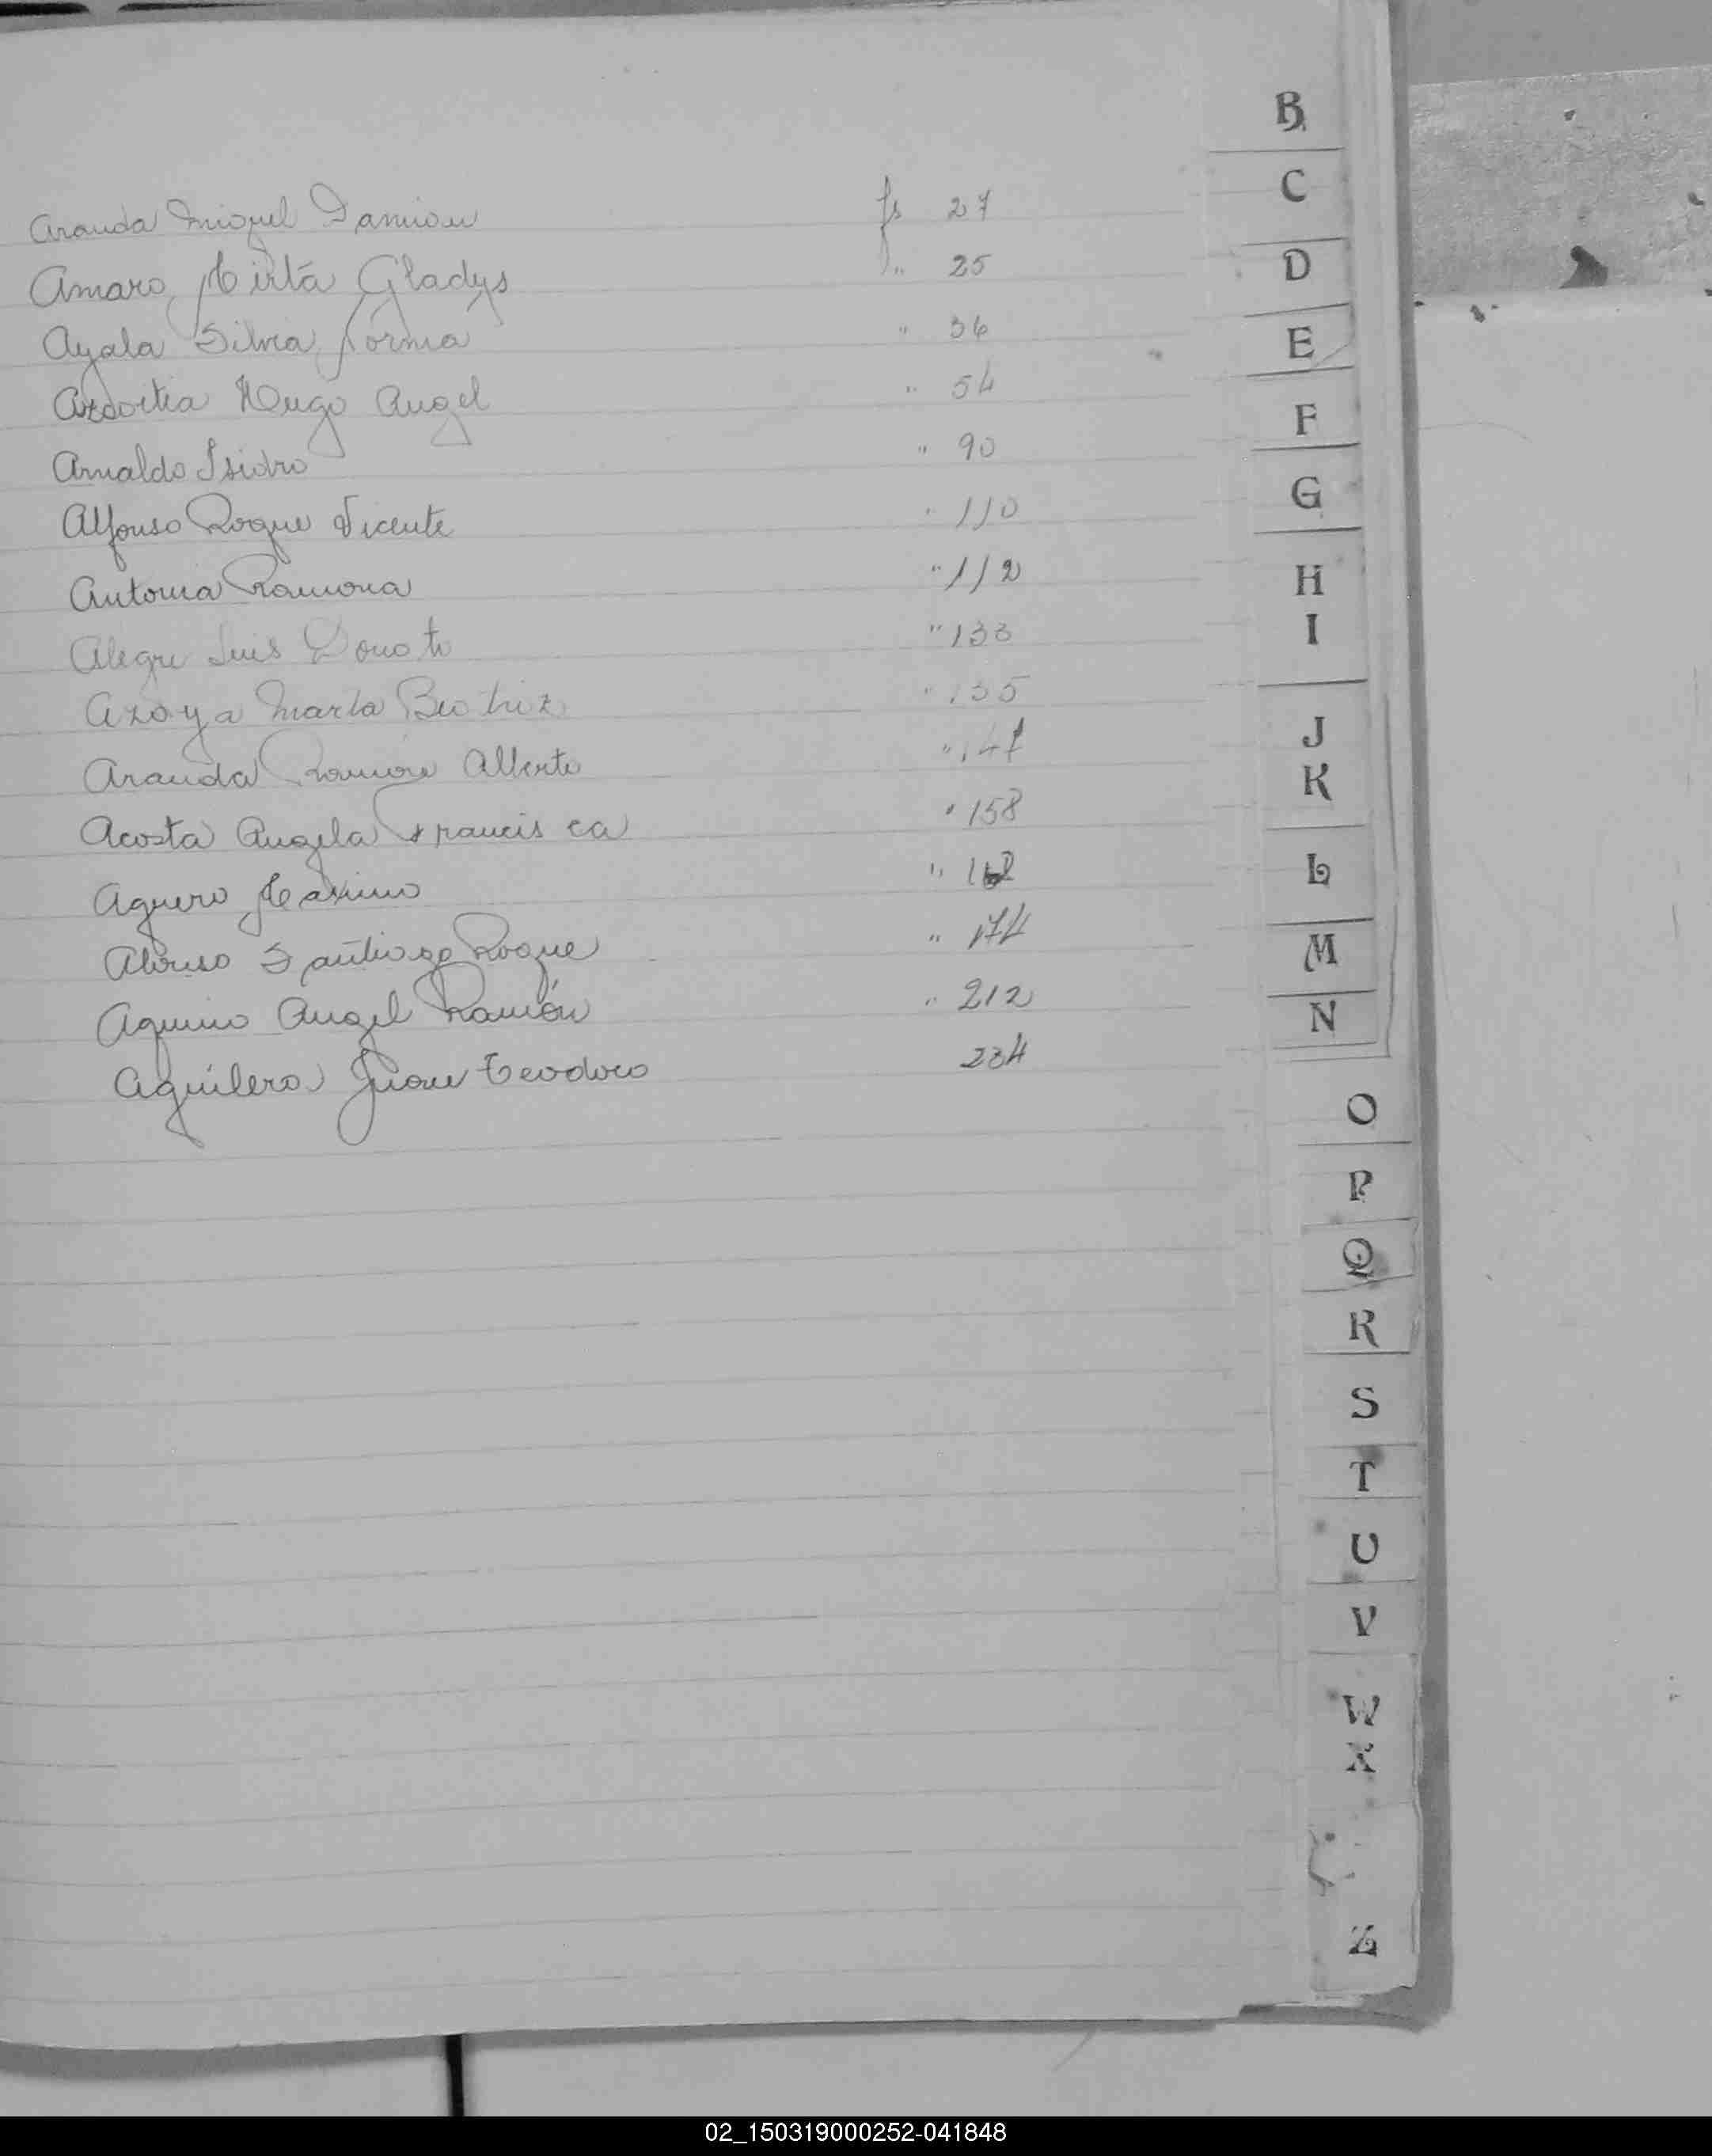 Aranda Miguel Damian fs 27
Amaro, Mirta Gladys " 25
Ayala Silvia Norma " 36
Hugo Angel " 54
Arnaldo Isidro " 90
Alfonso Roque Vicente " 110
Antonia Ramona " 112
Alegre Luis Donato " 133
Azoya Marta Beatriz " 135
Aranda Ramón Alberto " 147
Acosta Angela Francisca " 158
Aguero Maximo "
Alonso Santiago Roque " 174
Aquino Angel Ramón " 212
Aguilera Juan Teodoro 234
B
C
D
E
F
G
H
I
J
K
L
M
N
O
P
Q
R
S
T
U
V
W
X
Z
02_150319000252-041848